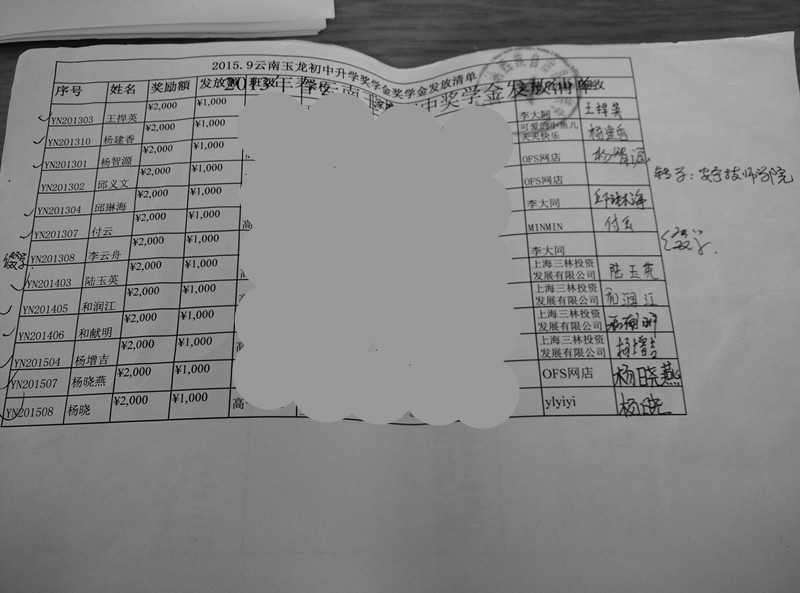 2015.9云南玉龙初中升学奖学金奖学金发放清单
序号 姓名 奖励额 发放额
YN201303 王捍英 ¥2,000 ¥1,000 李大同 王捍英
YN201310 杨建香 ¥2,000 ¥1,000 可爱的小鱼儿天天快乐
YN201301 杨智源 ¥2,000 ¥1,000 OFS网店 杨智源
YN201302 邱义文 ¥2,000 ¥1,000 OFS网店 转学:安宁技师学院
YN201304 邱琳海 ¥2,000 ¥1,000 李大同 邱琳海
YN201307 付云 ¥2,000 ¥1,000 高 MINMIN 付云
YN201308 李云舟 ¥2,000 ¥1,000 李大同
YN201403 陆玉英 ¥2,000 ¥1,000 上海三林投资发展有限公司 陆玉英
YN201405 和润江 ¥2,000 ¥1,000 上海三林投资发展有限公司 和润江
YN201406 和献明 ¥2,000 ¥1,000 上海三林投资发展有限公司 和献明
YN201504 杨增吉 ¥2,000 ¥1,000 上海三林投资发展有限公司 杨增吉
YN201507 杨晓燕 ¥2,000 ¥1,000 OFS网店 杨晓燕
YN201508 杨晓 ¥2,000 ¥1,000 高 ylyiyi 杨晓